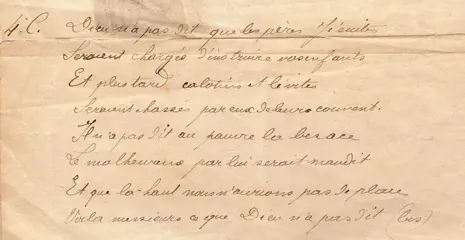 4e C. Dieu n'a pas dit que les pères Jésuites
Seraient chargés d'instruire vos enfants
Et plus tard calotins et lévites
Seraient chassés par eux de leurs couvent.
Il n'a pas dit au pauvre la besace
Le malheureux par lui serait maudit
Et que là haut nous n'aurions pas de place
Voilà messieurs ce que Dieu n'a pas dit (bis)